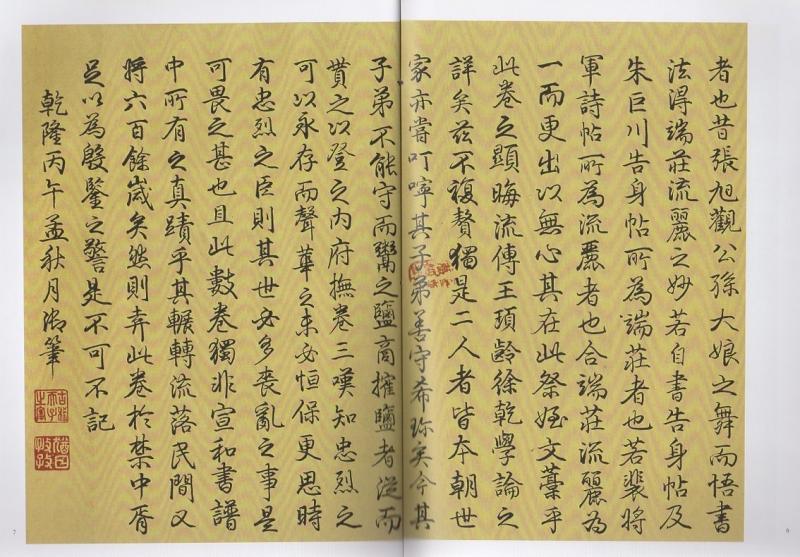 者也昔張旭觀公孫大娘之舞而悟書
法得端莊流麗之妙若自書告身帖及
朱巨川告身帖所為端莊者也若裴將
軍詩帖所為流麗者也合端莊流麗為
一而更出以無心其在此祭姪文藁乎
此卷之顯晦流傳王頊齡徐乾學論之
詳矣茲不複贅獨是二人者皆本朝世
家亦嘗叮嚀其子弟善守希珎矣今其
子弟不能守而鬻之鹽商擁鹽者從而
貢之以登之內府撫卷三嘆知忠烈之
可以永存而聲華之未必恒保更思時
有忠烈之臣則其世必多喪亂之事是
可畏之甚也且此數卷獨非宣和書譜
中所有之真蹟乎其輾轉流落民間又
將六百餘歲矣然則弆此卷於禁中胥
足以為殷鑒之警是不可不記
乾隆丙午孟秋月御筆
古稀天子之寶
猶日孜孜
7
6